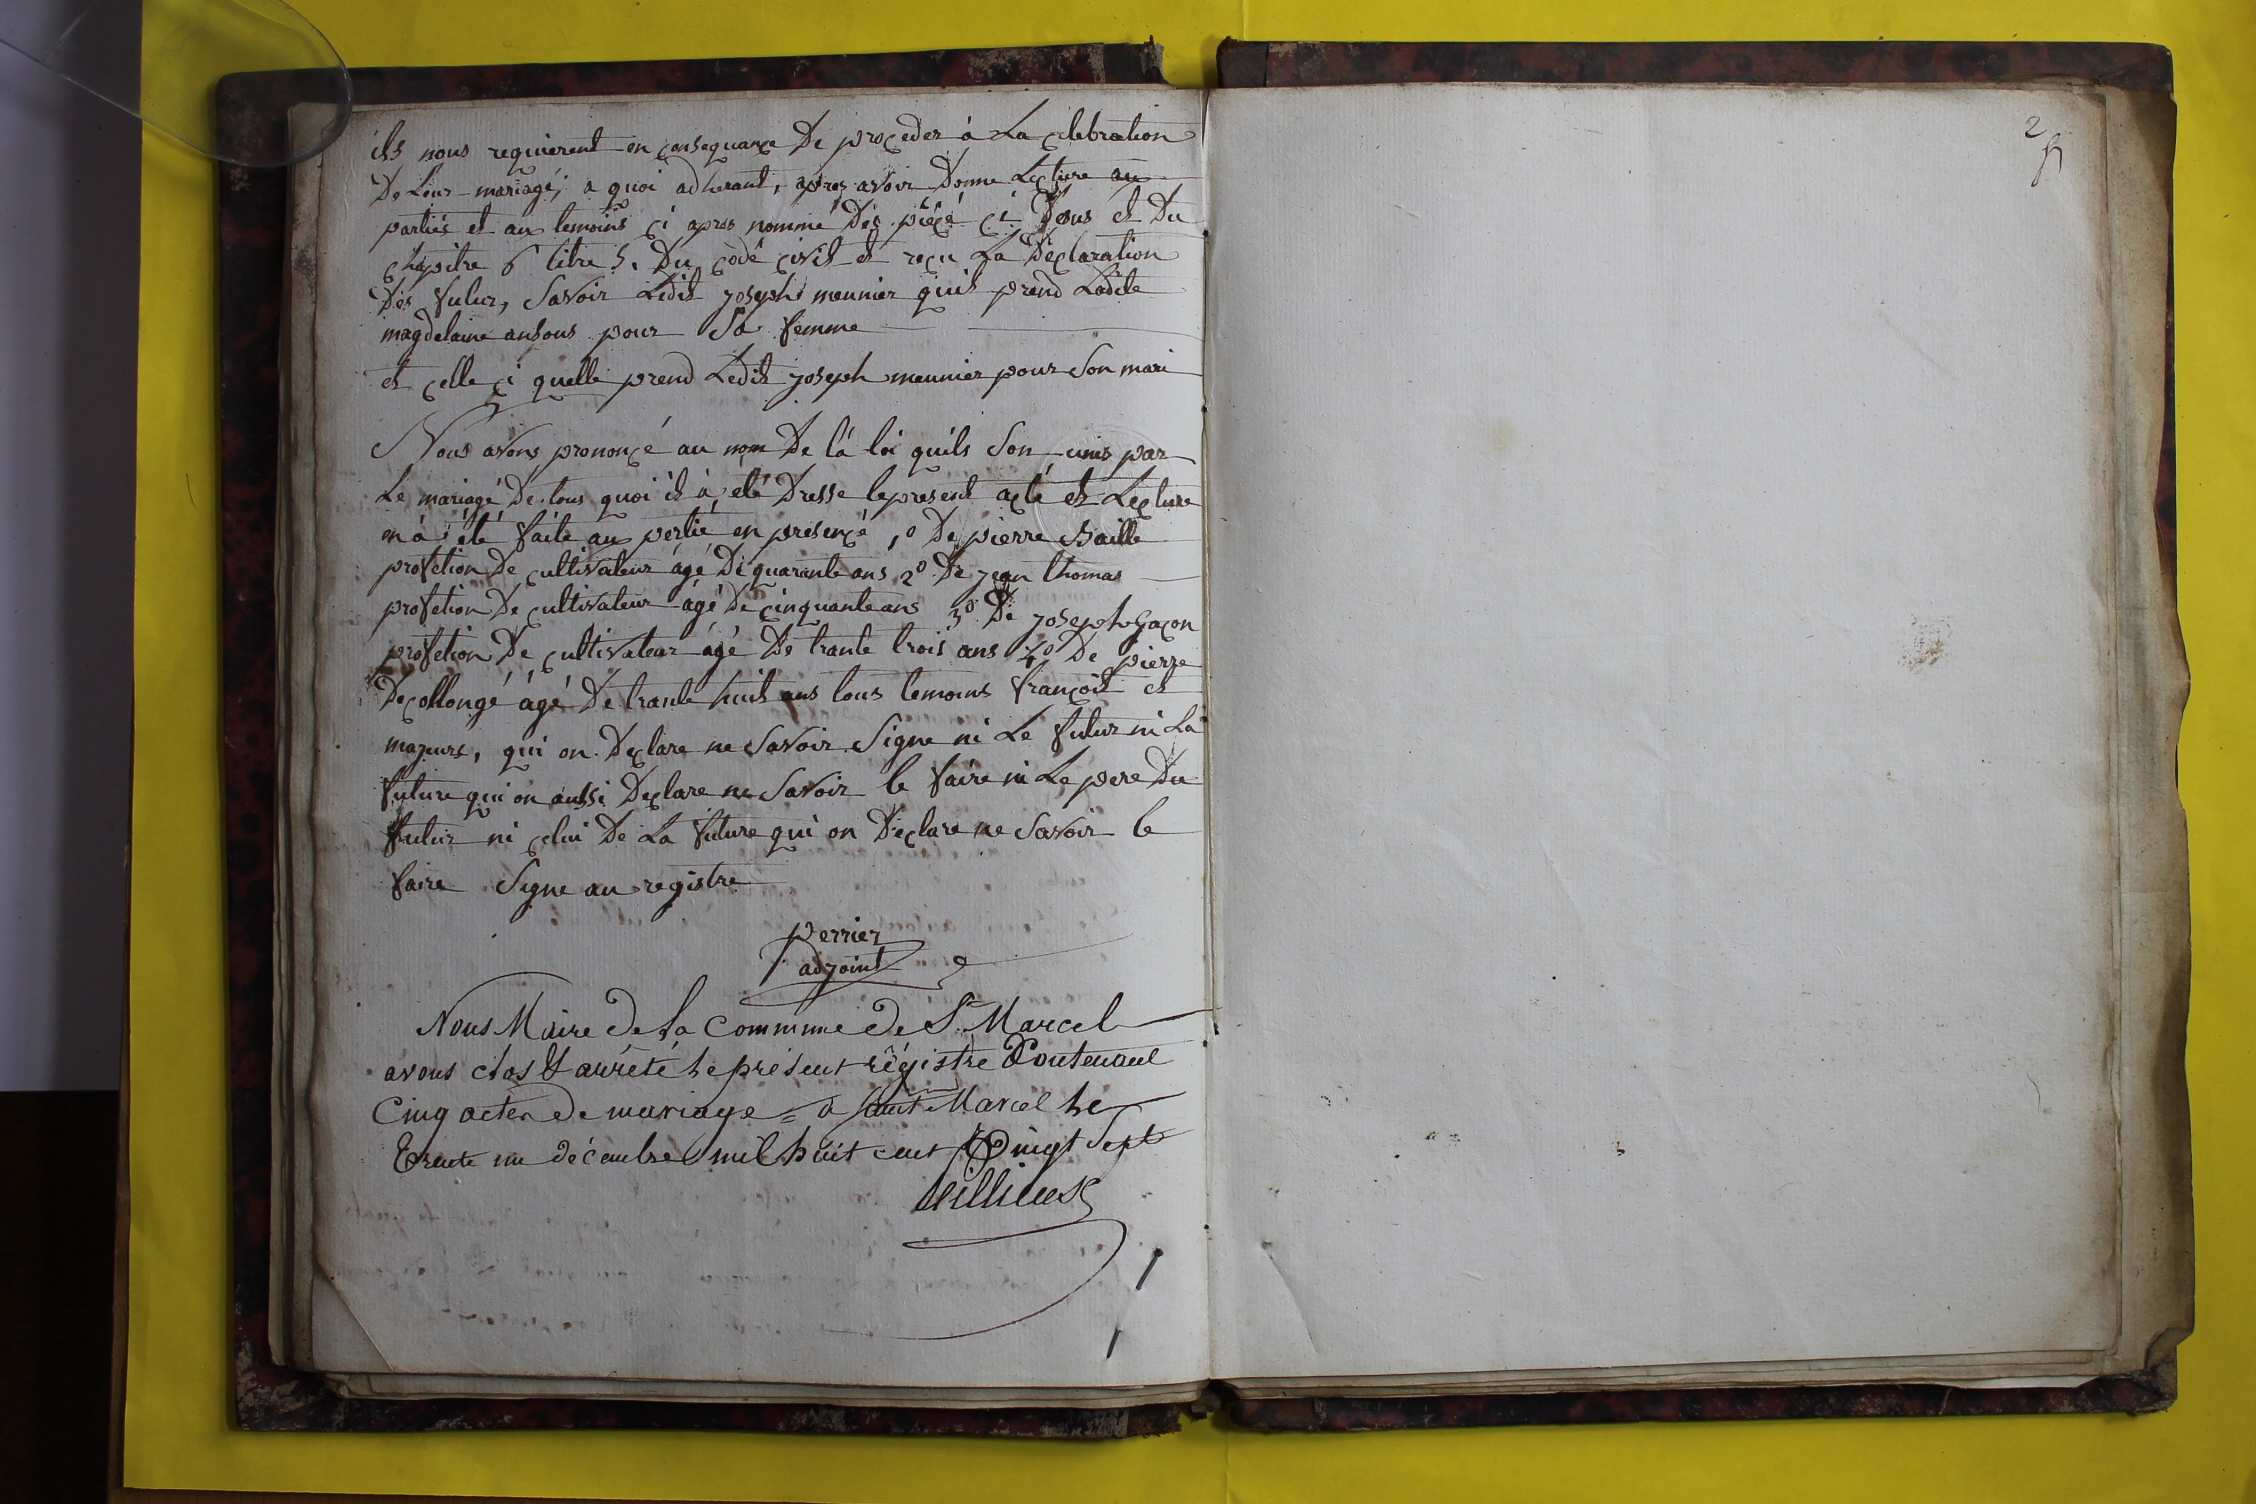 ils nous requierent en consequance De proceder à La celebration
De Leur mariagé; a quoi adherant, apres avoir Donne Lecture au
partiés et aux temoins ci apres nommé Dés piécé ci Desus et Du
chapitre 6 titre 5. Du codé civil et reçu La Déclaration
Dés futur, Savoir Ledit joseph meunier quil prend Ladite
magdelaine ansous pour Sa femme
et celle ci quelle prend Ledit joseph meunier pour Son mari
Nous avons prononcé au nom De la loi quils Son unis par
Le mariagé De tous quoi il à été Dresse lepresent acté et Lecture
en á été faite au pertié en presencé 1º De pierre Baille
profetion De cultivateur ágé De quarante ans 2º De jean thomas
profetion De cultivateur ágé De cinquante ans 3º De joseph Gacon
profetion De cultivateur ágé De trante trois ans 4º De pierre
Decollongé ágé De trante huit ans tous temoins françoit et
majeurs, qui on Declare ne Savoir Signe ni Le futur ni La
future qui on aussi Declare ne Savoir le faire ni Le pere Du
futur ni celui De La future qui on Déclare ne Savoir le
faire Signe au registre
perrier
adjoint
Nous Maire de La Commune de St Marcel
avons clos & arrêté le présent régistre Contenant
Cinq actes de mariage = a Saint Marcel le
Trente un décembre mil huit cent Vingt Sept
2